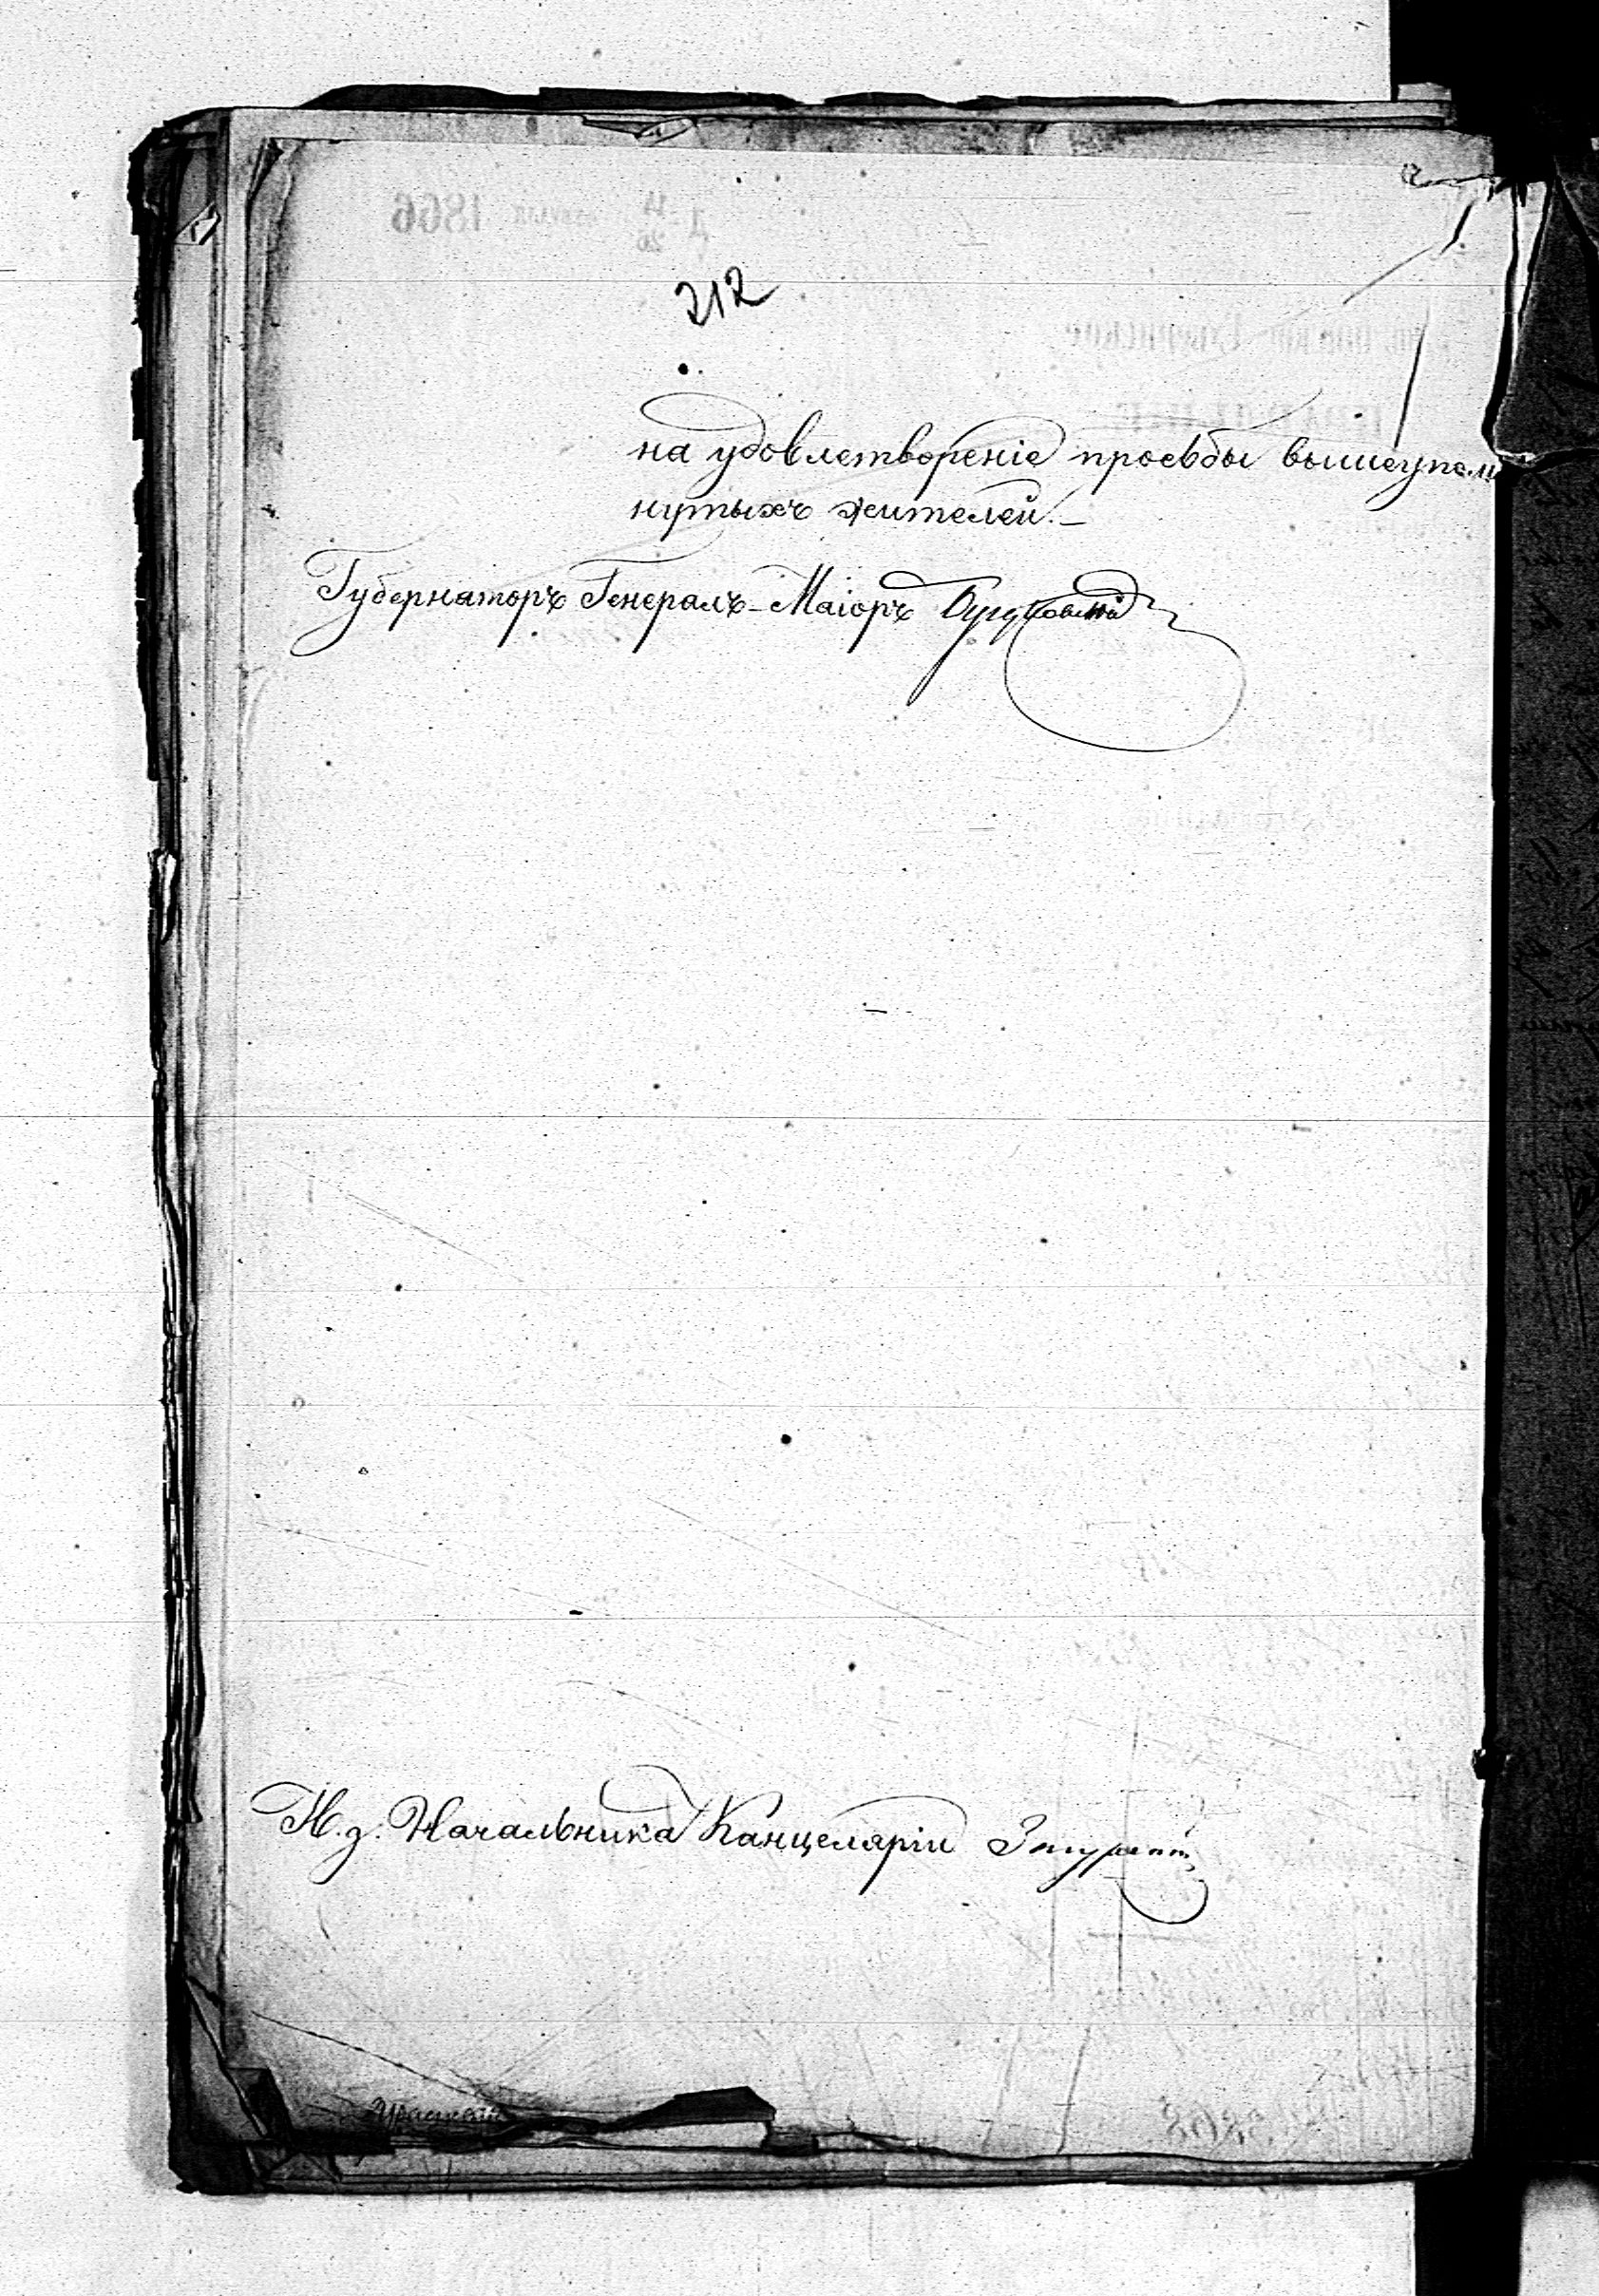 212
на удовлетвореніе просьбы вышеупом
нутыхъ жителей.—
Губернаторъ Генералъ-Маіоръ
И. д. Начальника Канцеляріи